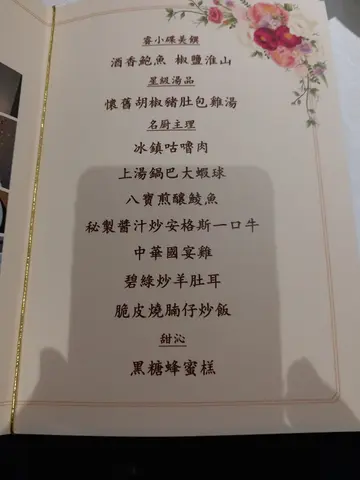 睿小碟美饌
酒香鮑魚 椒鹽淮山
星級湯品
懷舊胡椒豬肚包雞湯
名厨主理
冰鎮咕嚕肉
上湯鍋巴大蝦球
八寶煎釀鯪魚
秘製醬汁炒安格斯一口牛
中華國宴雞
碧綠炒羊肚耳
脆皮燒腩仔炒飯
甜沁
黑糖蜂蜜糕